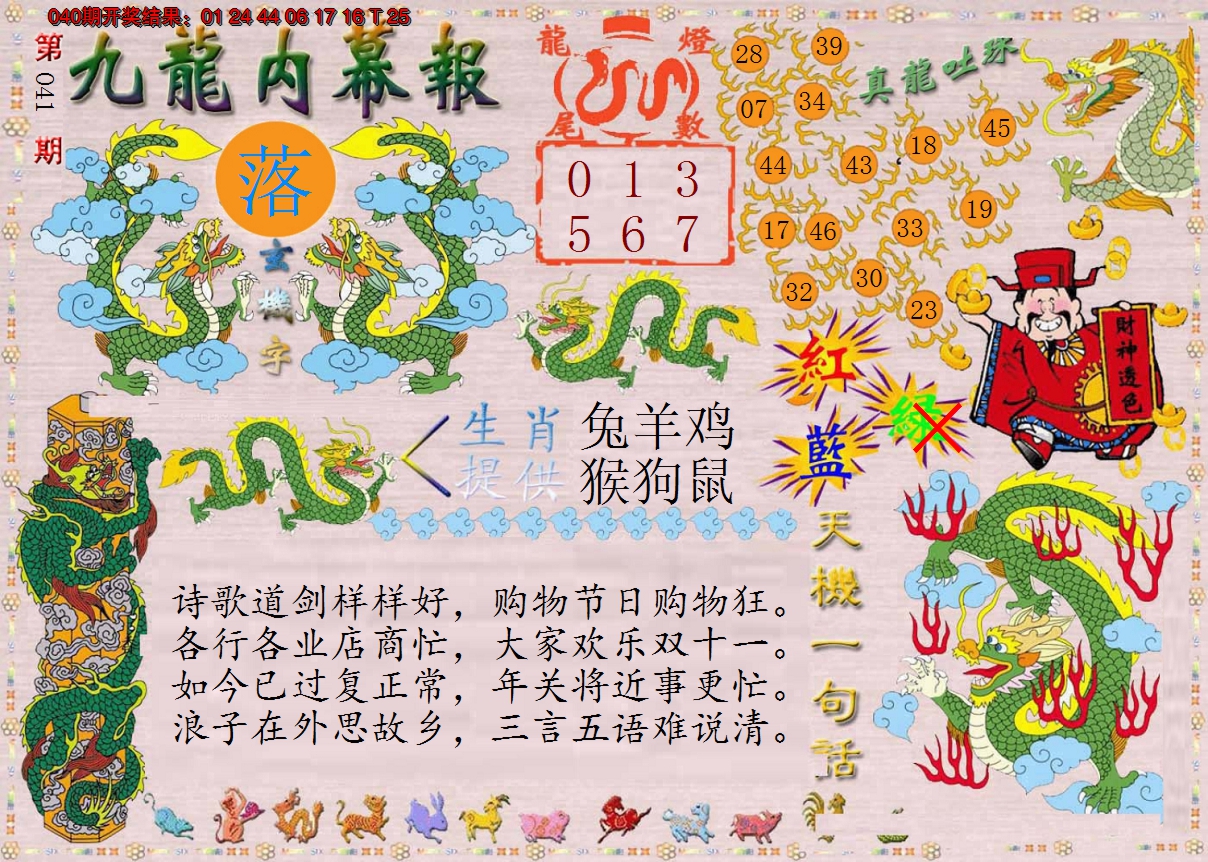 040期开奖结果：01 24 44 06 17 16 T 25
第041期
九龍内幕報
落
玄機字
龍燈
尾數
0 1 3
5 6 7
28 39
07 34
44 43 18 45
17 46 33 19
32 30 23
真龍吐珠
財神透色
紅
綠
藍
生肖提供
兔羊鸡
猴狗鼠
诗歌道剑样样好，购物节日购物狂。
各行各业店商忙，大家欢乐双十一。
如今已过复正常，年关将近事更忙。
浪子在外思故乡，三言五语难说清。
天機一句话